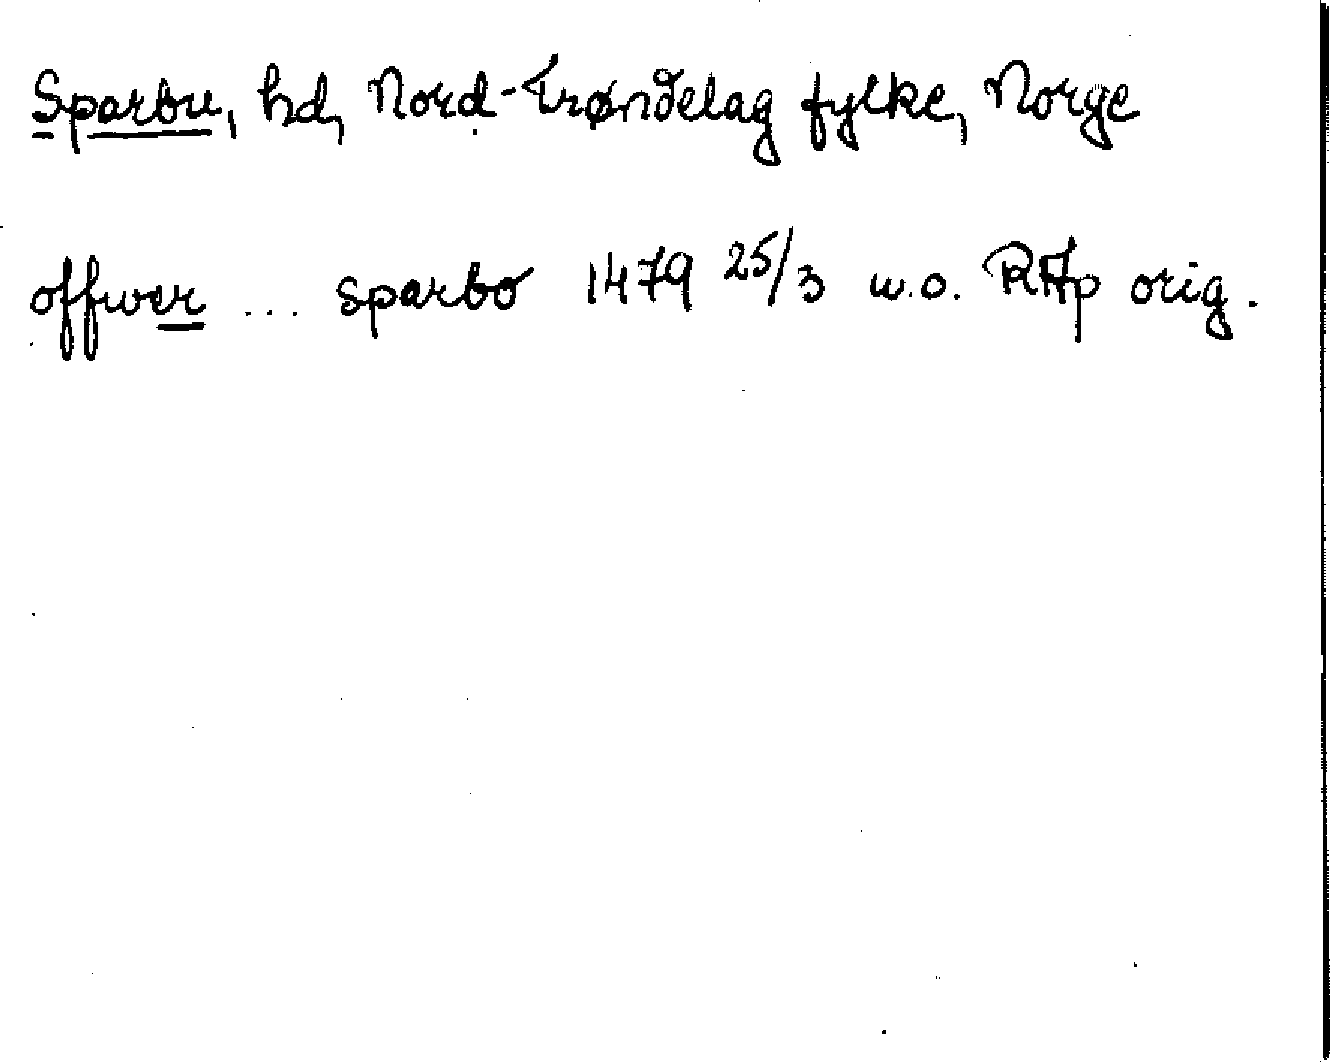 Sparbu, hd, Nord-Trøndelag fylke, Norge
offwer ... sparbo 1479 25/3 u.o. RAp orig.